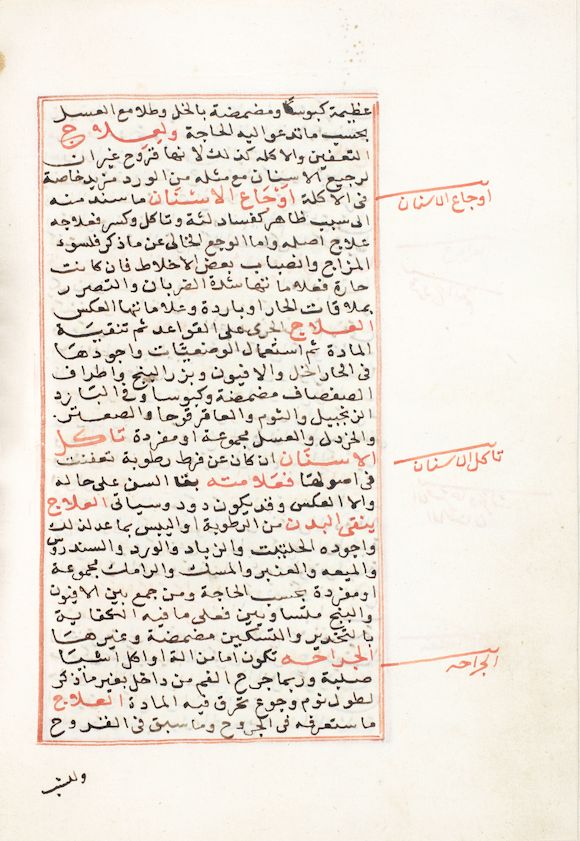 عظيمة كبوسا ومضمضة بالخل وطلا مع العسل
بحسب ما تدعو اليه الحاجة وليعلاج
التعفين والاكله كذلك لانها قروح غير ان
لرجيع الاسنان مع مثله من الورد مزيد خاصة
فى الاكلة اوجاع الاسنان ما سند منه
اوجاع الاسنان
الى سبب ظاهر كفساد لثة وتاكل وكسر فعلاجه
علاج اصله واما الوجع الخالى عن ما ذكر فلسوء
المزاج وانصباب بعض الاخلاط فان كانت
حارة فعلاماتها شدة الضربان والتضرر
بملاقات الحار او باردة وعلاماتها العكس
العلاج الجرى على القواعد ثم تنقية
المادة ثم استعمال الوضعيات واجودها
فى الحار الخل والافيون وبزر البنج واطراف
الصفصاف مضمضة وكبوسا وفى البارد
الزنجبيل والثوم والعاقر قرحا والصعتر
والخردل والعسل مجموعة او مفردة تاكل
الاسنان ان كان عن فرط رطوبة تعفنت
تاكل الاسنان
فى اصولها فعلامته بقا السن على حاله
والا العكس وقد يكون دود وسياتى العلاج
ينقى البدن من الرطوبة او اليبس بما عد لذلك
واجوده الحلتيت والزباد والورد والسندروس
والميعه والعنبر والمسك والرامك مجموعة
او مفردة بحسب الحاجة ومن جمع بين الافيون
والبنج متساويين فعلى ما فيه الكفاية
بالتخدير والتسكين مضمضة وغيرها
الجراحه تكون اما من الة او اكل اشيا
الجراحه
صلبة وربما جرح الفم من داخل بغير ما ذكر
لطول نوم وجوع تحرق فيه المادة العلاج
ما ستعرفه فى الجروح وما سبق فى القروح